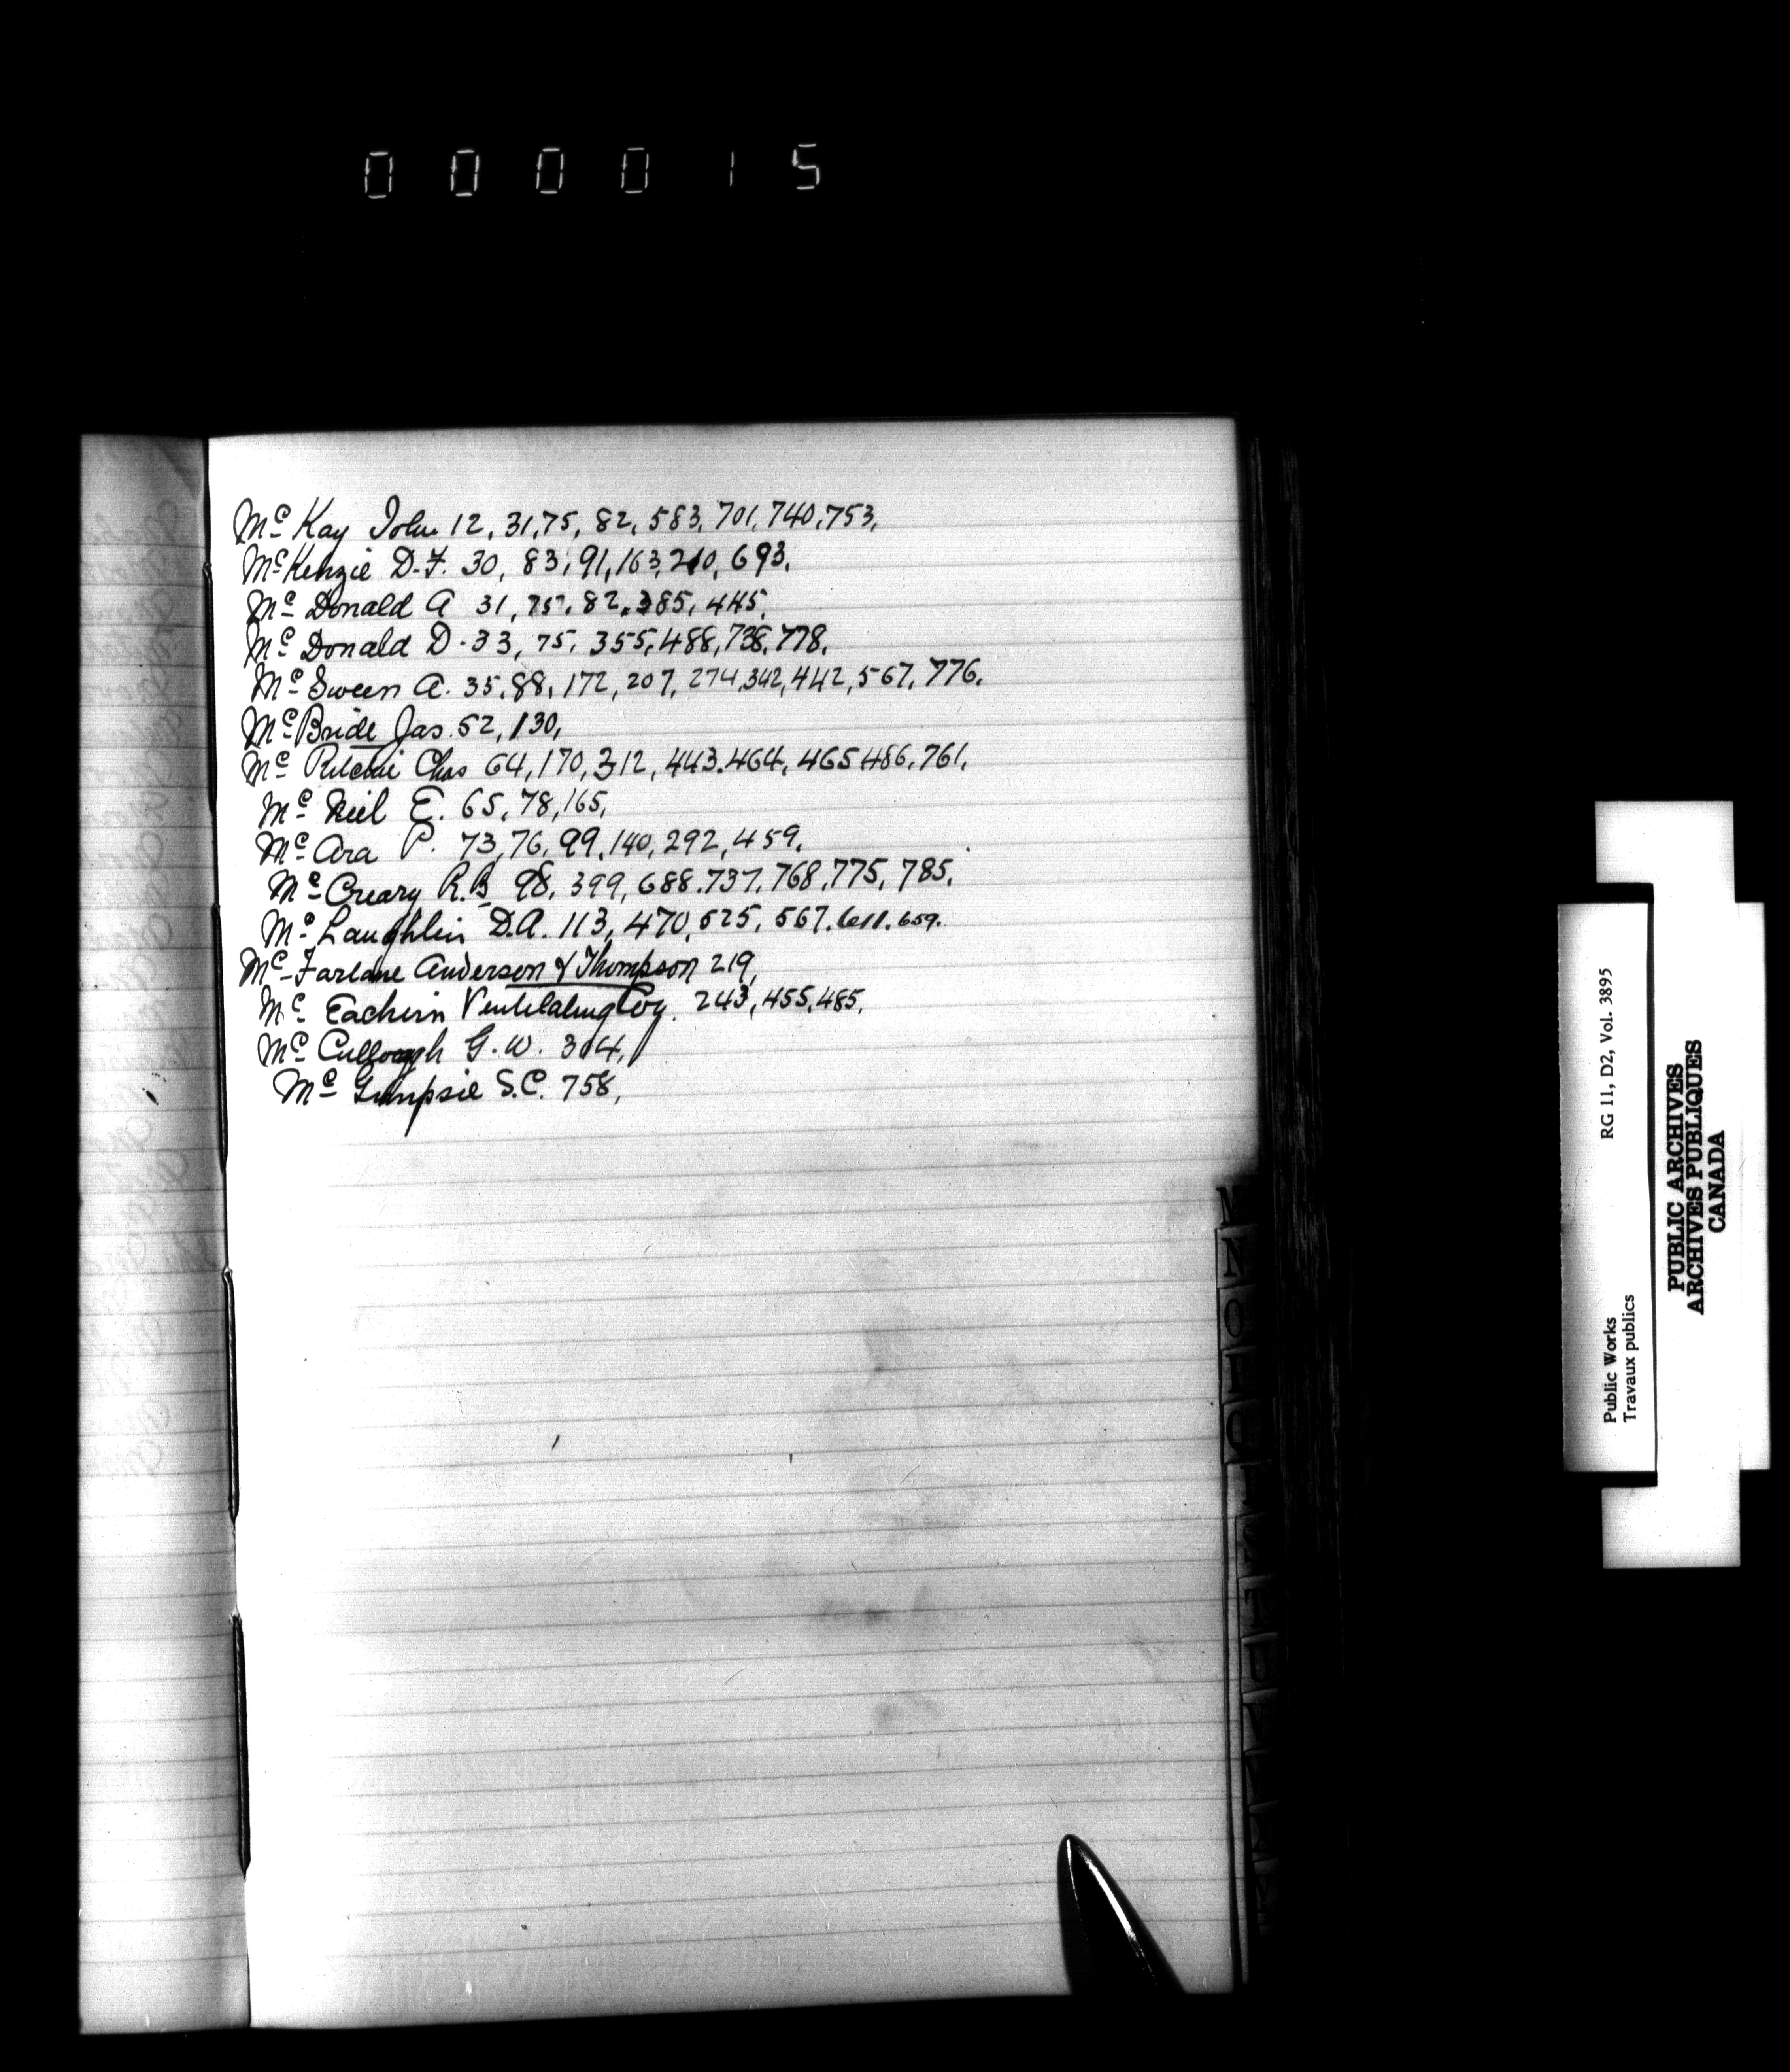 000015
Mc Kay John 12, 31, 75, 82, 583, 701, 740, 753,
McKenzie D.F. 30, 83, 91, 163, 210, 693,
Mc Donald A 31, 75, 82, 385, 445,
Mc Donald D. 33, 75, 355, 488, 738, 778,
Mc Sween A. 35, 88, 172, 207, 274, 342, 442, 567, 776,
McBride Jas. 52, 130,
Mc Ritchie Chas 64, 170, 312, 443, 464, 465 486, 761,
Mc Neil E. 65, 78, 165,
Mc Ara P. 73, 76, 99, 140, 292, 459,
Mc Creary R.B 98, 399, 688, 737, 768, 775, 785,
Mc Laughlin D.A. 113, 470, 525, 567, 611, 659.
Mc Farlane Anderson & Thompson 219,
Mc Eachern Ventilating Coy. 243, 455, 485,
Mc Cullough G.W. 304,
Mc Gimpsie S.C. 758,
M
N
O
P
Q
Public Works
Travaux publics
RG 11, D2, Vol. 3895
PUBLIC ARCHIVES
ARCHIVES PUBLIQUES
CANADA